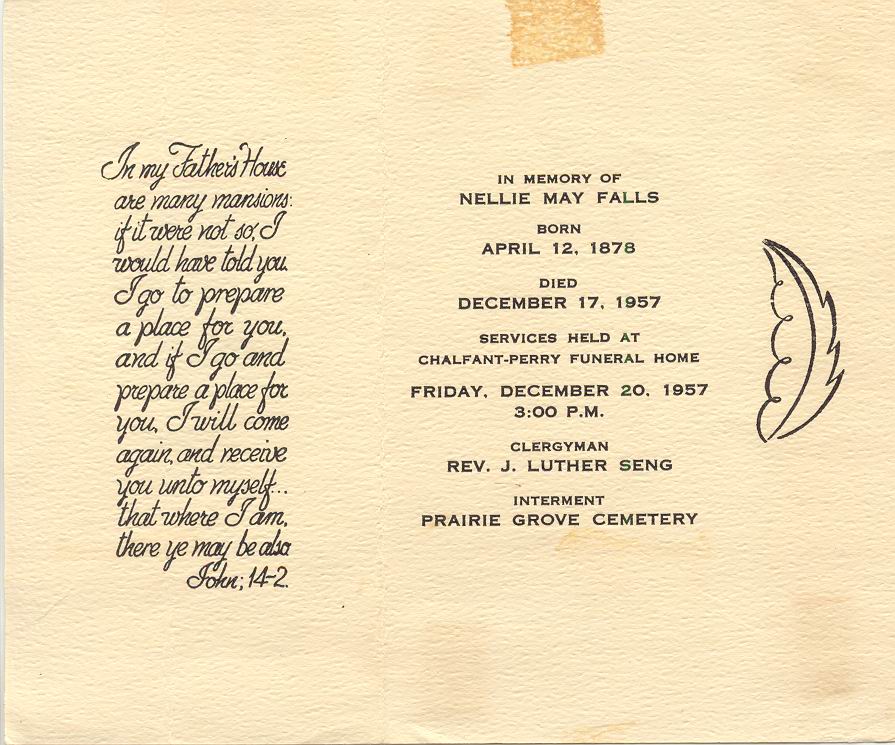 In my Father's House
are many mansions:
if it were not so, I
would have told you.
I go to prepare
a place for you,
and if I go and
prepare a place for
you, I will come
again, and receive
you unto myself...
that where I am,
there ye may be also.
John; 14-2.
IN MEMORY OF
NELLIE MAY FALLS
BORN
APRIL 12, 1878
DIED
DECEMBER 17, 1957
SERVICES HELD AT
CHALFANT-PERRY FUNERAL HOME
FRIDAY, DECEMBER 20, 1957
3:00 P.M.
CLERGYMAN
REV. J. LUTHER SENG
INTERMENT
PRAIRIE GROVE CEMETERY